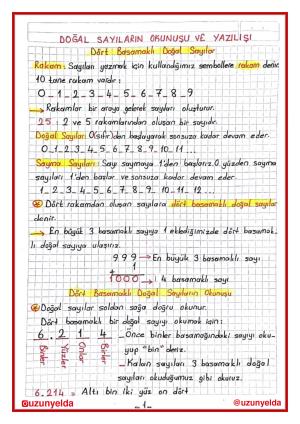 DOĞAL SAYILARIN OKUNUŞU VE YAZILIŞI
Dört Basamaklı Doğal Sayılar
Rakam: Sayıları yazmak için kullandığımız sembollere rakam denir.
10 tane rakam vardır:
0_1_2_3_4_5_6_7_8_9
→ Rakamlar bir araya gelerek sayıları oluşturur.
25: 2 ve 5 rakamlarından oluşan bir sayı.
Doğal Sayılar: 0(sıfır)'dan başlayarak sonsuza kadar devam eder.
0_1_2_3_4_5_6_7_8_9_10_11...
Sayma Sayıları: Sayı saymaya 1'den başlarız. 0 yüzden sayma
sayıları 1'den başlar ve sonsuza kadar devam eder.
1_2_3_4_5_6_7_8_9_10_11_12...
Dört rakamdan oluşan sayılara dört basamaklı doğal sayılar
denir.
→ En büyük 3 basamaklı sayıya 1 eklediğimizde dört basamak-
lı doğal sayıya ulaşırız.
999 → En büyük 3 basamaklı sayı
+ 1
1000 → 4 basamaklı sayı
Dört Basamaklı Doğal Sayıların Okunuşu
Doğal sayılar soldan sağa doğru okunur.
Dört basamaklı bir doğal sayıyı okumak için:
6.214 _Önce binler basamağındaki sayıyı oku-
yup "bin" deriz.
Binler Yüzler Onlar Birler
_Kalan sayıları 3 basamaklı doğal
sayıları okuduğumuz gibi okuruz.
6.214 = Altı bin iki yüz on dört
_1_
@uzunyelda
@uzunyelda